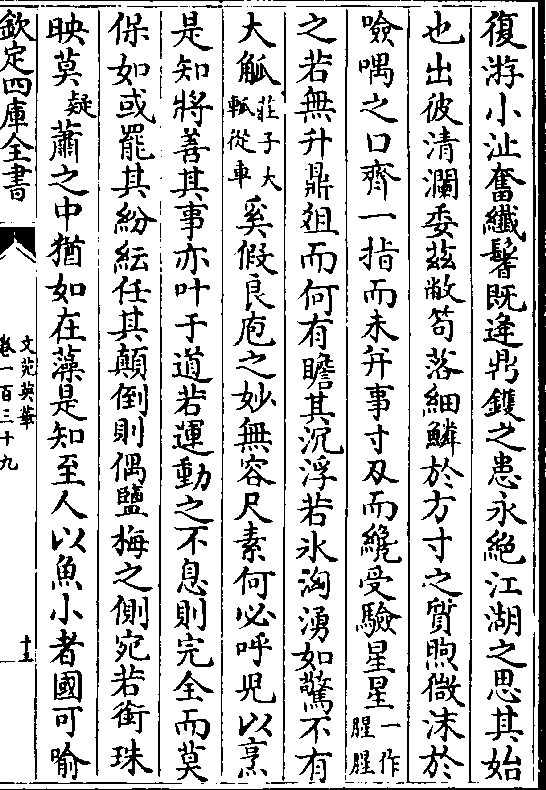 復游小沚奮纖鬐既逢鼎鑊之患永絕江湖之思其始
也出彼清瀾委兹敝笱落細鱗於方寸之質煦微沫於
噞喁之口齊一指而未弁事寸刃而纔受驗星星一作腥腥
之若無升鼎俎而何有瞻其沉浮若氷洶湧如驚不有
大觚莊子大軱從車奚假良庖之妙無容尺素何必呼兒以烹
是知將善其事亦叶于道若運動之不息則完全而莫
保如或罷其紛紜任其顛倒則偶鹽梅之側宛若銜珠
映莫疑蕭之中猶如在藻是知至人以魚小者國可喻
欽定四庫全書
文苑英華
卷一百三十九
十五